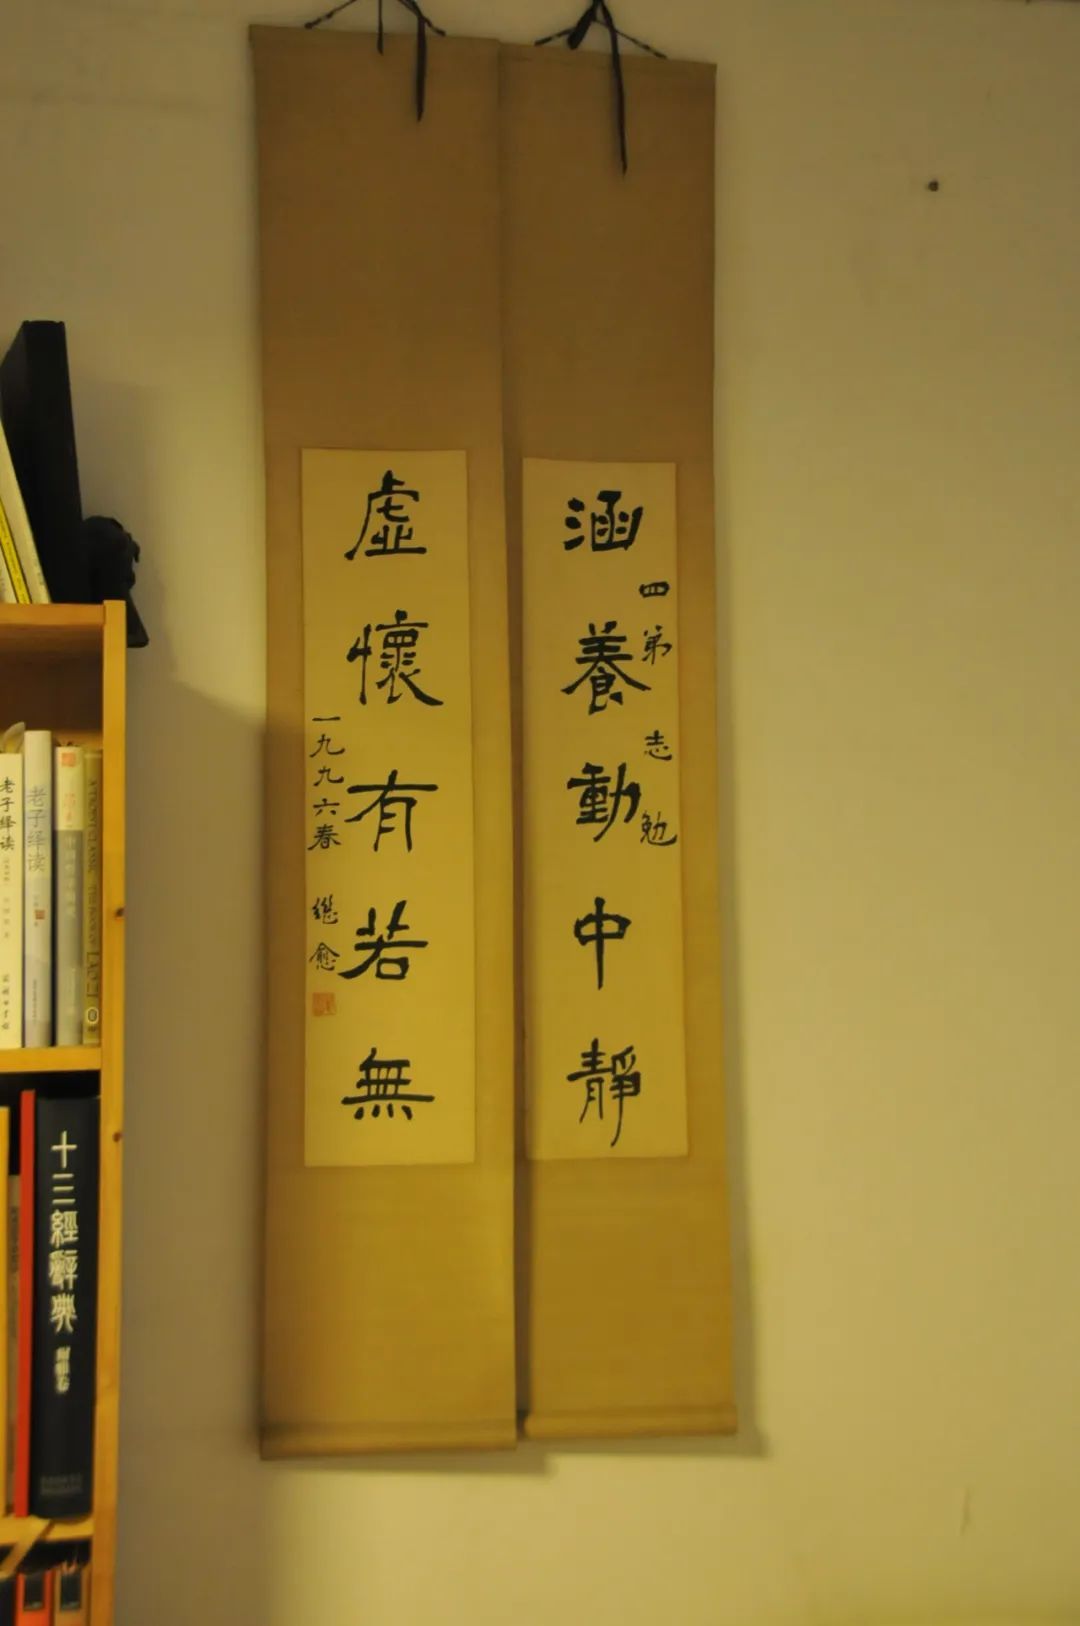 涵養動中靜
四弟 志勉
虛懷有若無
一九九六春 继愈
老子绎读
老子绎读
十三經辭典